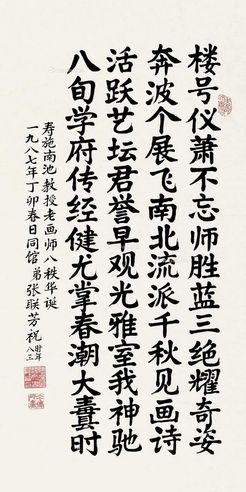 楼号仪萧不忘师胜蓝三绝耀奇姿
奔波个展飞南北流派千秋见画诗
活跃艺坛君誉早观光雅室我神驰
八旬学府传经健尤掌春潮大纛时
寿施南池教授老画师八秩华诞
一九八七年丁卯春日同馆弟张联芳祝时年八三